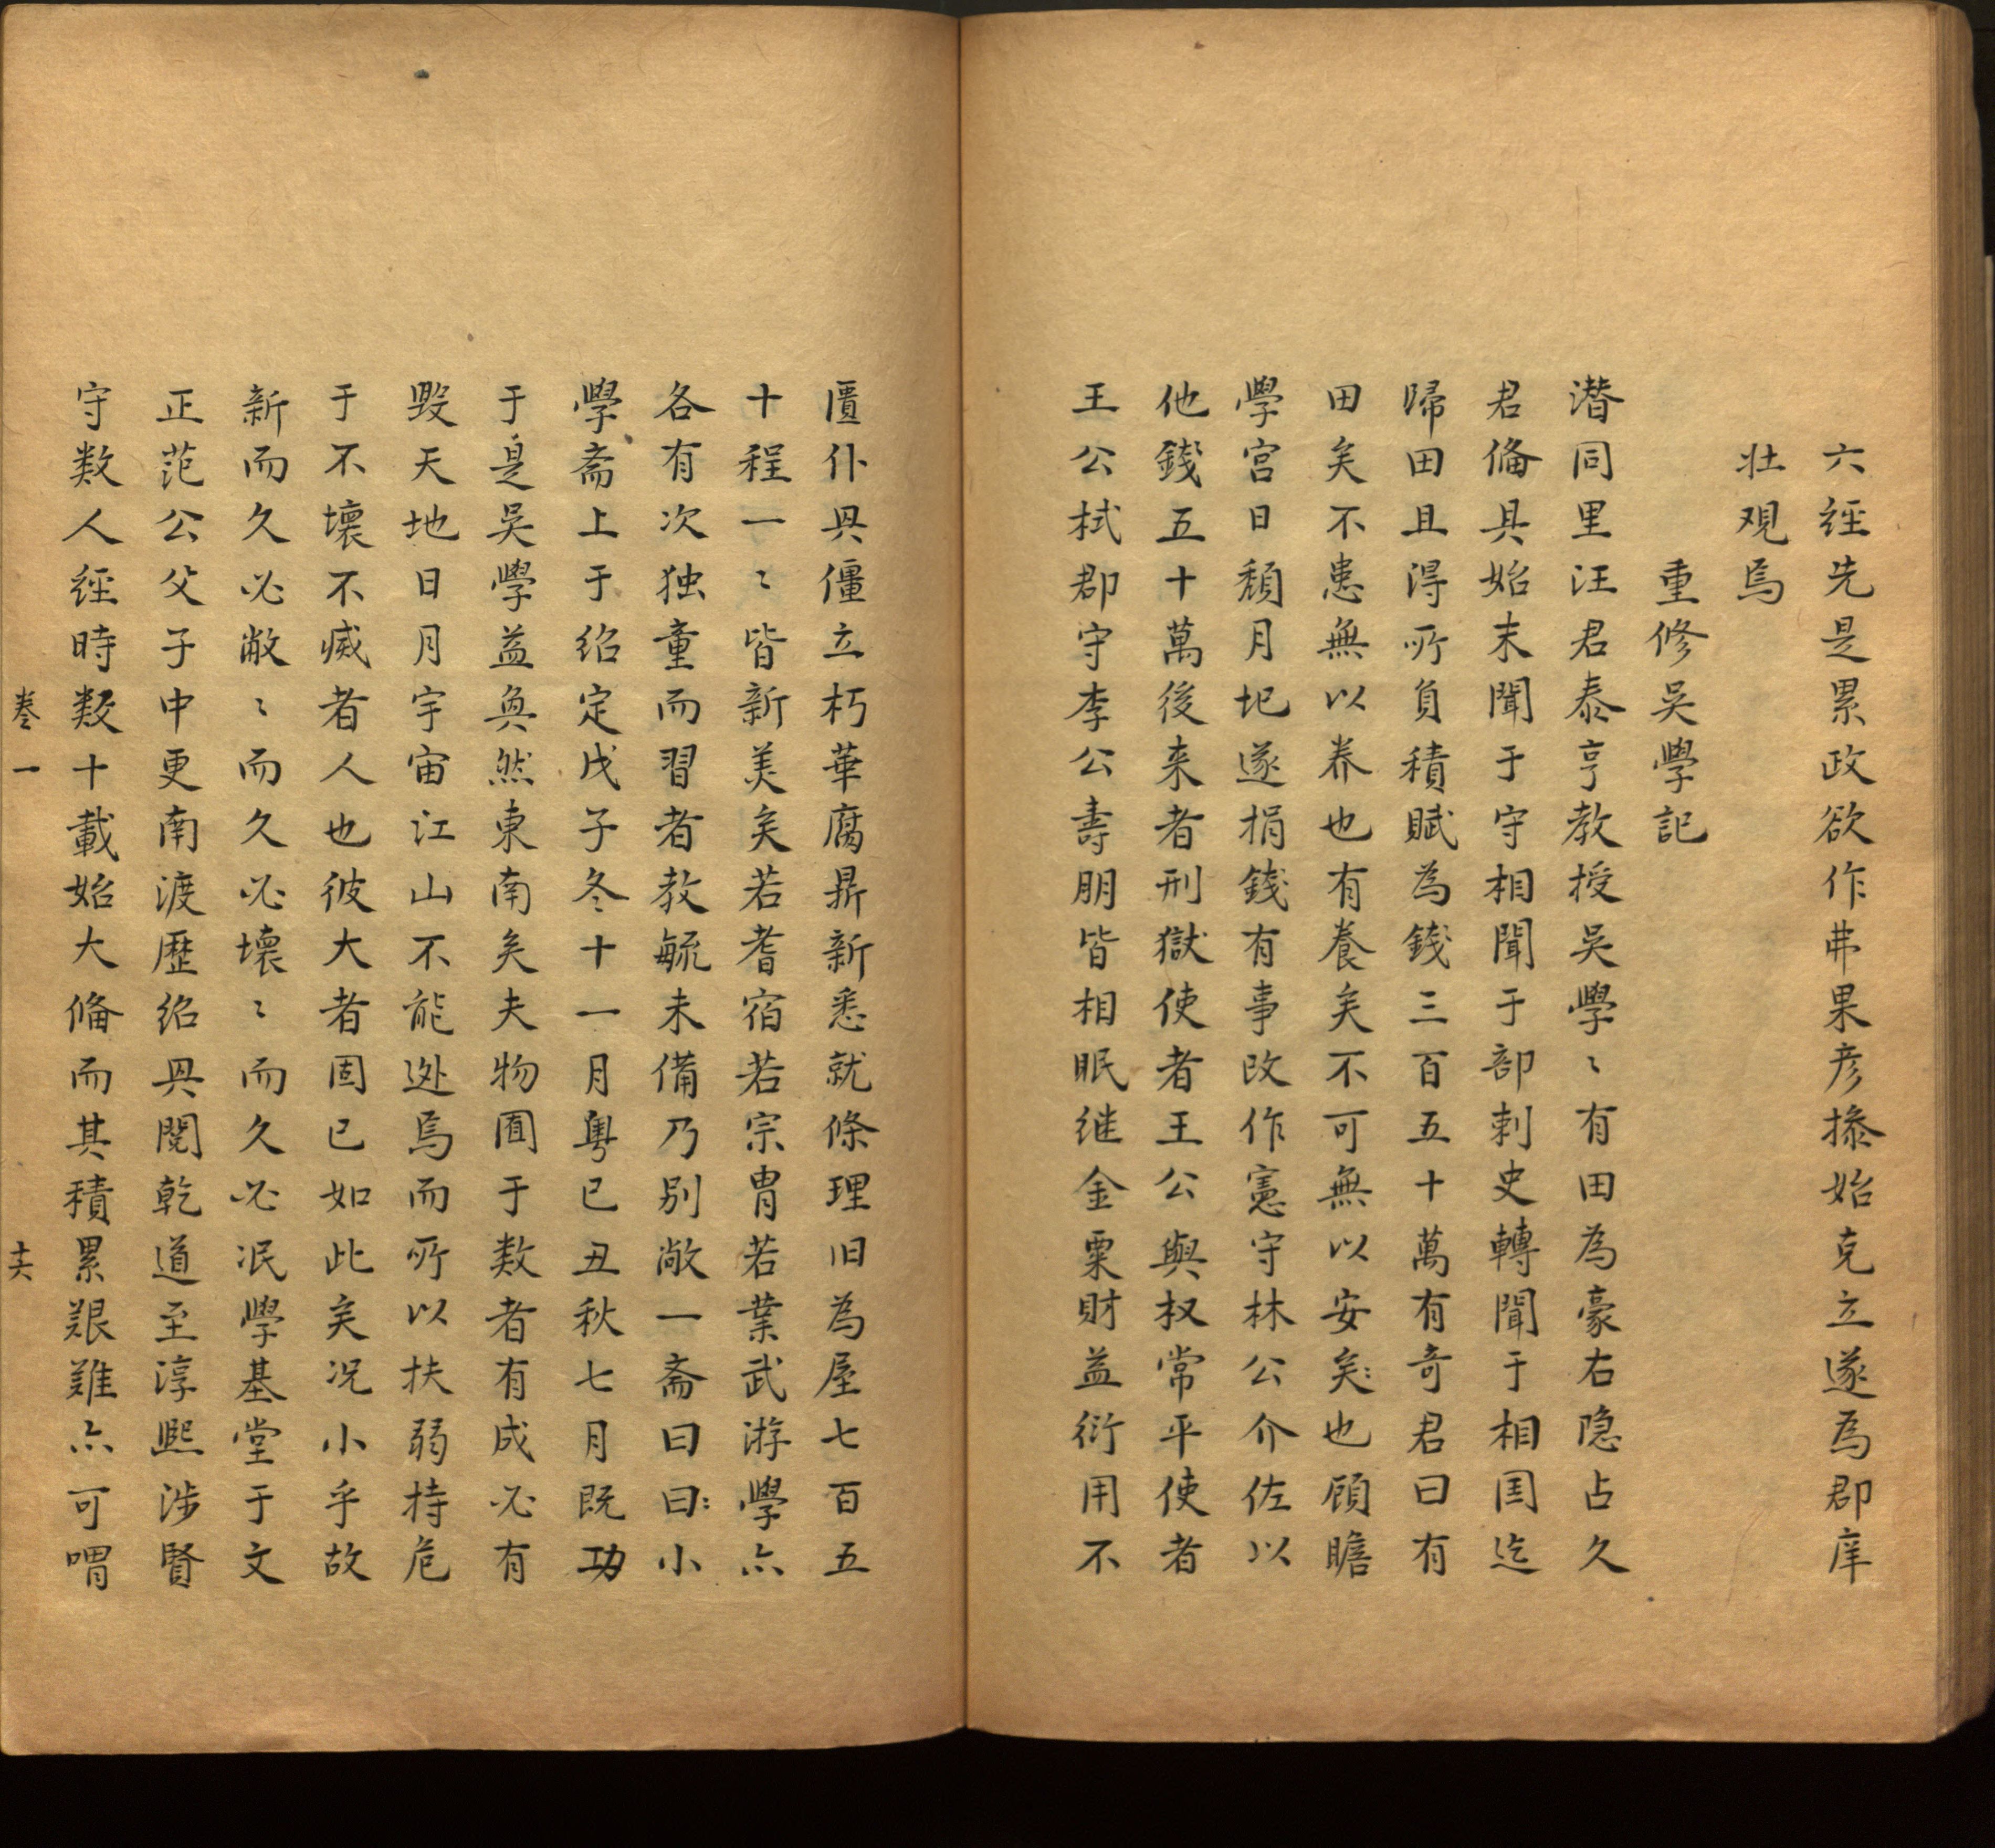 六經先是累政欲作弗果彦摻始克立遂為郡庠
壮观焉
重修吴學記
潜同里汪君泰亨教授吴學〻有田為豪右隐占久
君俻具始末聞于守相聞于部刺史轉聞于相囯迄
歸田且淂所負積賦為錢三百五十萬有奇君曰有
田矣不患無以养也有養矣不可無以安矣〻也顾瞻
學宫日頹月圮遂捐錢有事改作憲守林公介佐以
他錢五十萬後来者刑獄使者王公與权常平使者
王公栻郡守李公壽朋皆相眂继金粟財益衍用不
匱仆㒷僵立朽華腐鼎新悉就條理旧為屋七百五
十程一〻皆新美矣若耆宿若宗胄若業武游學亦
各有次独童而習者教毓未備乃别敞一斋曰曰〻小
學斋上于绍定戊子冬十一月粤已丑秋七月既功
于是吴學益奐然東南矣夫物囿于数者有成必有
毀天地日月宇宙江山不能迯焉而所以扶弱持危
于不壞不烕者人也彼大者固已如此矣况小乎故
新而久必敝〻而久必壞〻而久必泯學基堂于文
正范公父子中更南渡歷绍㒷閱乾道至淳熙涉賢
守数人經時数十載始大俻而其積累艱難亦可喟
卷一 十六